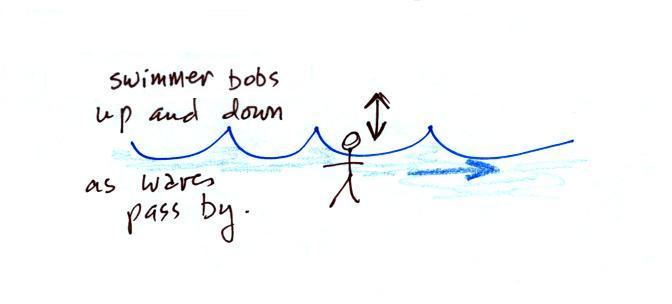 swimmer bobs
up and down
as waves
pass by.